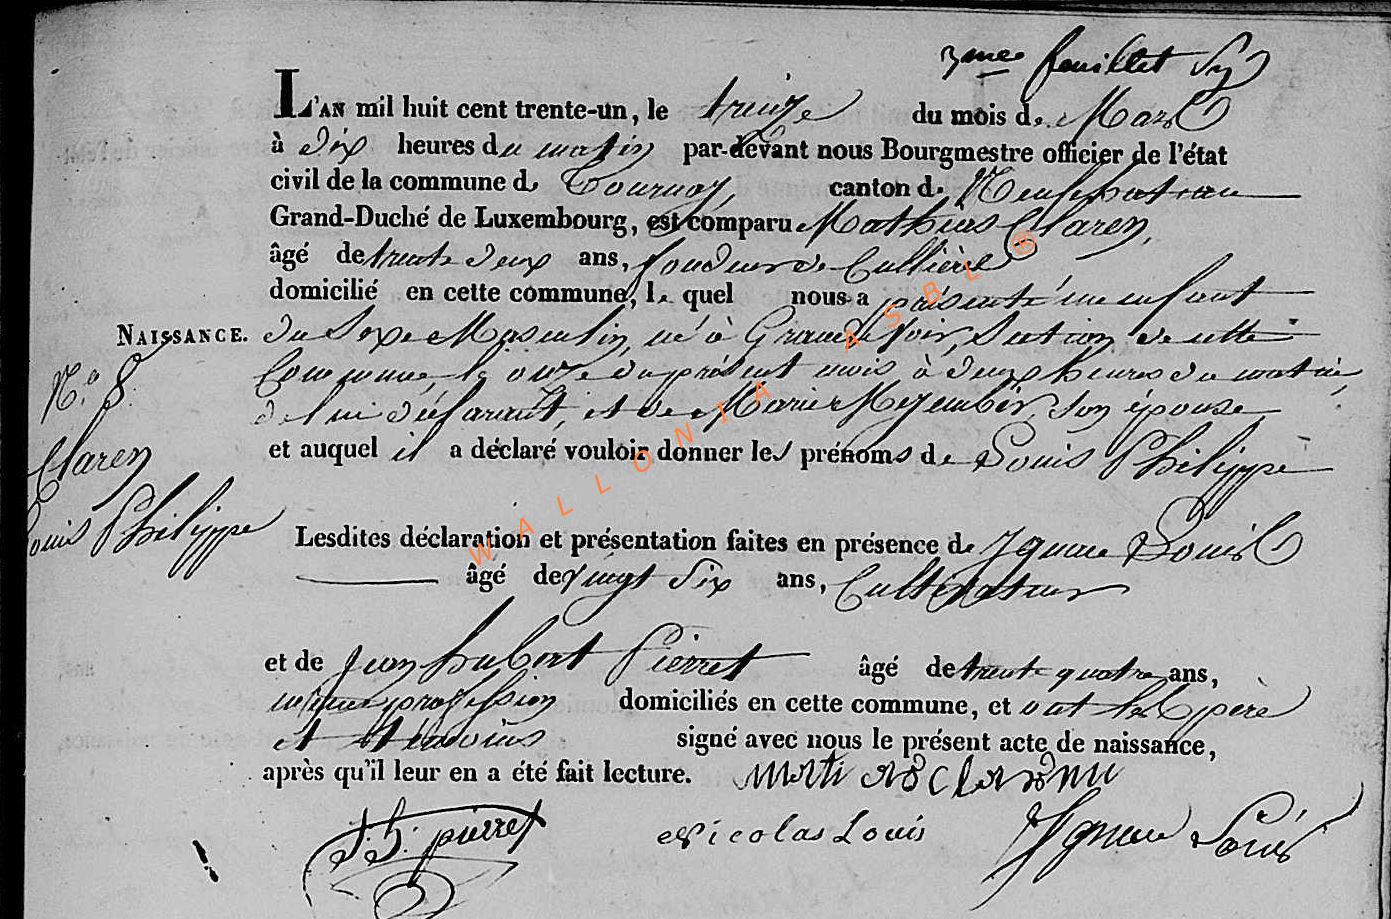 3me feuillet
L'AN mil huit cent trente-un, le treize du mois de Mars
à Dix heures du matin par-devant nous Bourgmestre officier de l'état
civil de la commune de Tournay, canton de Neufchateau
Grand-Duché de Luxembourg, est comparu Mathias Claren,
âgé de trente deux ans, fondeur de Cuillières
domicilié en cette commune, le quel nous a présenté un enfant
NAISSANCE. du Sexe Masculin, né à Grandvoir, Section de cette
Commune, le onze du présent mois à deux heures du matin,
N.° 8. de lui déclarant, et de Marie son épouse
et auquel il a déclaré vouloir donner les prénoms de Louis Philippe
Claren
Louis Philippe
Lesdites déclaration et présentation faites en présence de Ignace Louis
âgé de vingt Six ans, Cultivateur
et de Jean hubert Pierret âgé de trente quatre ans,
même profession domiciliés en cette commune, et ont les père
et témoins signé avec nous le présent acte de naissance,
après qu'il leur en a été fait lecture.
J. h. pierret Nicolas Louis Ignace Louis
WALLONIA ASBL ®